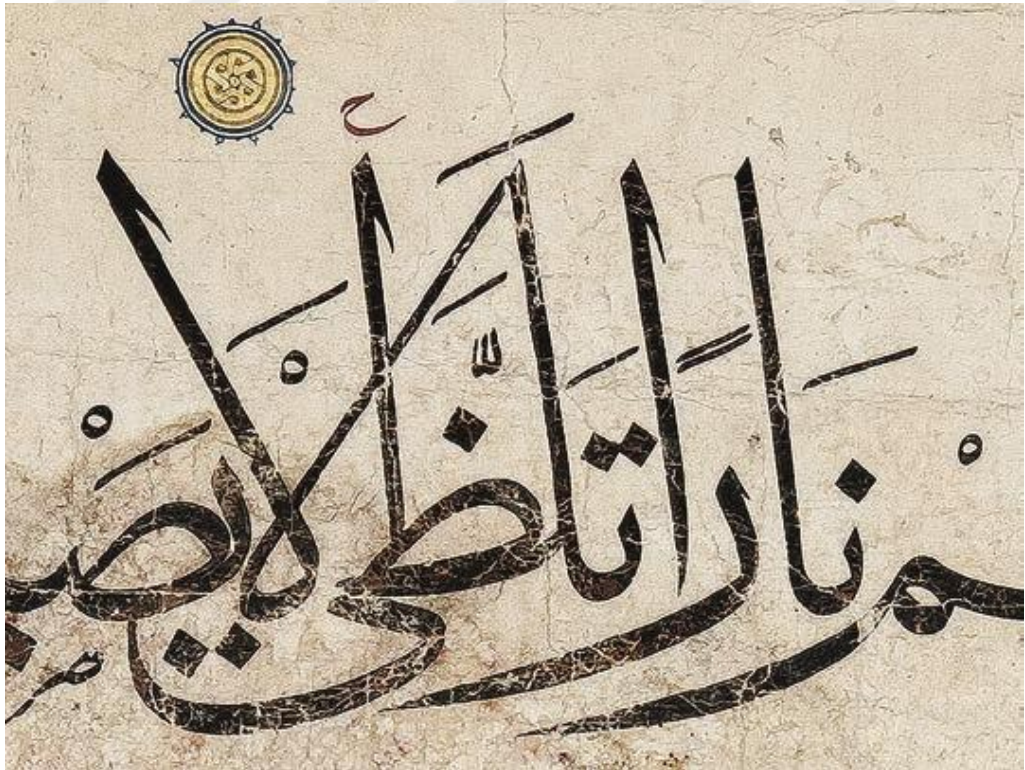 ـمْ نَارًا تَلَظَّى لَاْ يَصْـ